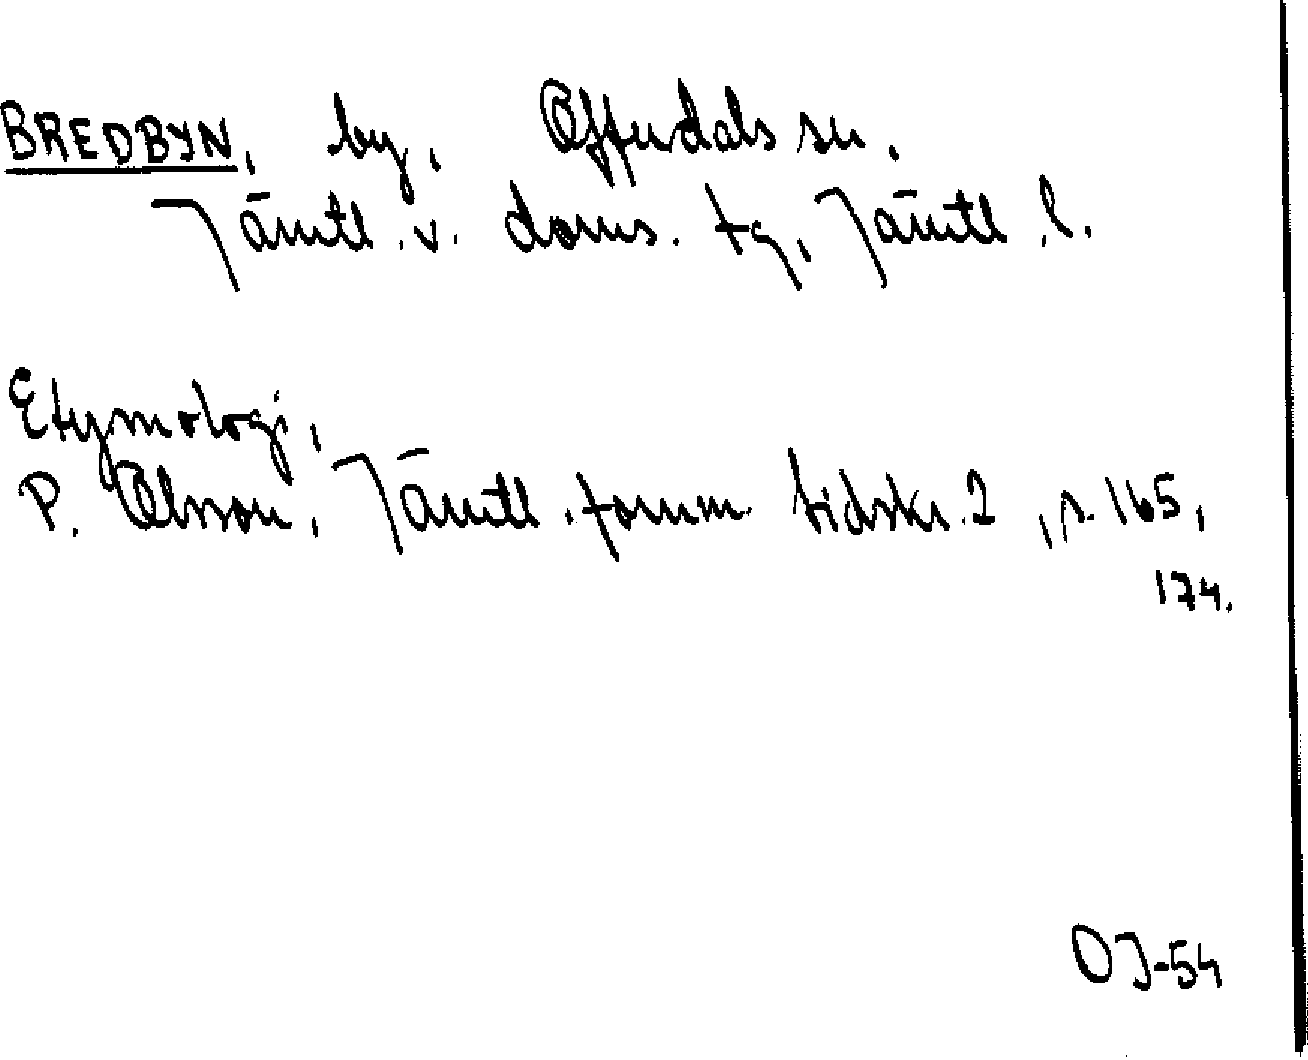 BREDBYN, by, Offerdals sn,
Jämtl. v. doms. tg, Jämtl. l.
Etymologi,
P. Olsson, Jämtl. fornm. tidskr. 2, s. 165,
174.
OJ-54